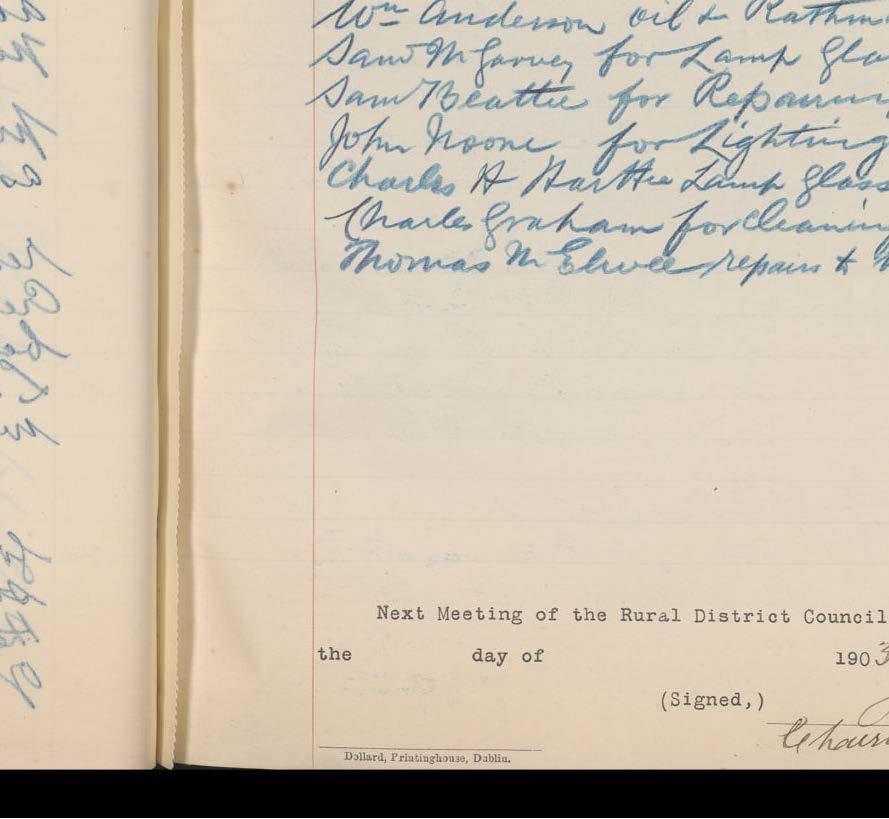 Wm Anderson oil &c Rathm
Saml McGarvey for Lamp Gla
Saml Beattie for Repairing
John Noone for Lighting
Charles H Lamp Glass
Charles Graham for cleaning
Thomas McElwee repairs to
Next Meeting of the Rural District Council
the day of 1903
(Signed,)
Chairm
Dollard, Printinghouse, Dublin.